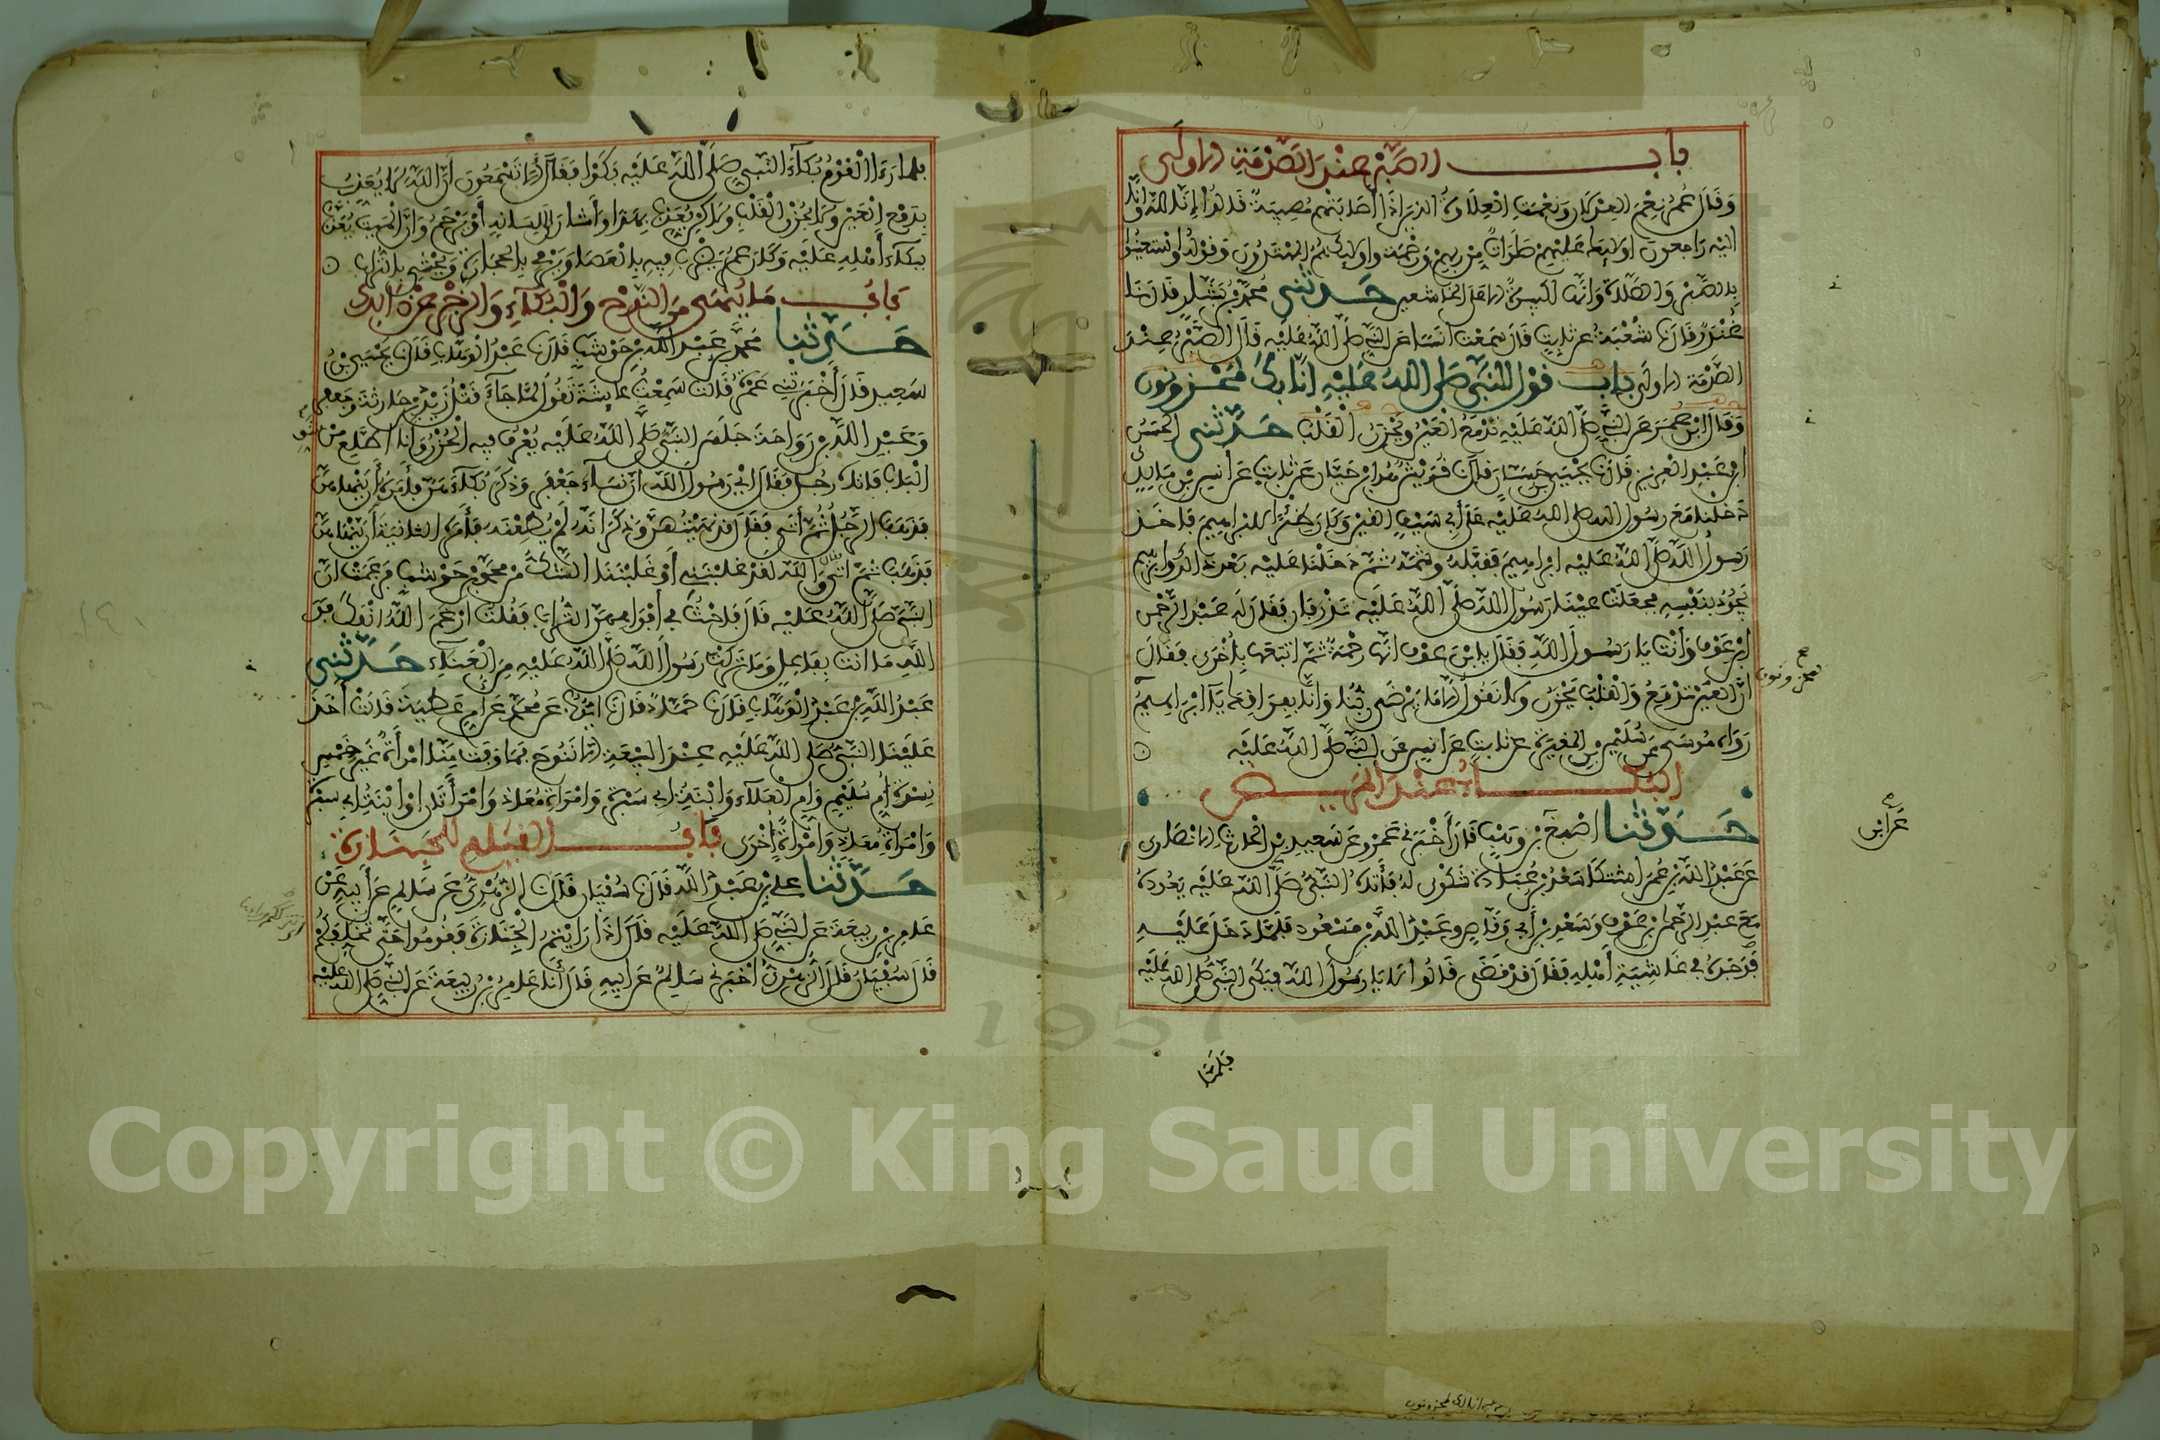 باب الصبر عند الصدمة الاولى
وقال عمر نعم العدلان ونعمت العلاوة الذين اذا اصابتهم مصيبة قالوا إنا لله وإنا
اليه راجعون اولئك عليهم صلوات من ربهم ورحمة واولئك هم المهتدون وقوله واستعينوا
بالصبر والصلاة وانها لكبيرة الا على الخاشعين حدثني محمد بن بشار قال نا
غندر قال نا شعبة عن ثابت قال سمعت انسا عن النبي صلى الله عليه قال الصبر عند
الصدمة الاولى باب قول النبي صلى الله عليه انا بك لمحزونون
وقال ابن عمر عن النبي صلى الله عليه تدمع العين ويحزن القلب حدثني الحسن
ابن عبد العزيز قال نا يحيى بن حسان قال نا قريش هو ابن حيان عن ثابت عن أنس بن مالك
دخلنا مع رسول الله صلى الله عليه على أبي سيف القين وكان ظئرا لابراهيم فاخذ
رسول الله صلى الله عليه ابراهيم فقبله وشمه ثم دخلنا عليه بعد ذلك وابراهيم
يجود بنفسه فجعلت عينا رسول الله صلى الله عليه تذرفان فقال له عبد الرحمن
ابن عوف وأنت يا رسول الله فقال يا بن عوف انها رحمة ثم اتبعها بأخرى فقال
ان العين تدمع والقلب يحزن ولا نقول الا ما يرضي ربنا وانا بفراقك يا ابراهيم
لمحزونون
رواه موسى عن سليمن بن المغيرة عن ثابت عن انس عن النبي صلى الله عليه
البكاء عند المريض
حدثنا اصبغ عن ابن وهب قال أخبرني عمرو عن سعيد بن الحارث الانصاري
عن عبد الله بن عمر اشتكى سعد بن عبادة شكوى له فأتاه النبي صلى الله عليه يعوده
مع عبد الرحمن بن عوف وسعد بن أبي وقاص وعبد الله بن مسعود فلما دخل عليه
فوجده في غاشية أهله فقال قد قضى قالوا لا يا رسول الله فبكى النبي صلى الله عليه
فلما
فلما رءا القوم بكاء النبي صلى الله عليه بكوا فقال ألا تسمعون ان الله لا يعذب
بدمع العين ولا بحزن القلب ولاكن يعذب بهذا وأشار الى لسانه أو يرحم وان الميت يعذب
ببكاء أهله عليه وكان عمر يضرب فيه بالعصا ويرمي بالحجارة ويحثي بالتراب
باب ما ينهى من النوح والبكاء والزجر عن ذلك
حدثنا محمد بن عبد الله بن حوشب قال نا عبد الوهاب قال نا يحيى بن
سعيد قال أخبرتني عمرة قالت سمعت عايشة تقول لما جاء قتل زيد بن حارثة وجعفر
وعبد الله بن رواحة جلس النبي صلى الله عليه يعرف فيه الحزن وأنا اطلع من
الباب فاتاه رجل فقال اي رسول الله ان نساء جعفر وذكر بكاءهن فأمره أن ينهاهن
فذهب الرجل ثم أتى فقال قد نهيتهن وذكر انه لم يطعنه فأمره الثانية أن ينهاهن
فذهب ثم اتى والله لقد غلبنني أو غلبننا الشك من محمد بن حوشب فزعمت ان
النبي صلى الله عليه قال فاحث في أفواههن التراب فقلت ارغم الله انفك فو
الله ما انت بفاعل وما تركت رسول الله صلى الله عليه من العناء حدثني
عبد الله بن عبد الوهاب قال نا حماد قال نا ايوب عن محمد عن ام عطية قالت أخذ
علينا النبي صلى الله عليه عند البيعة الا ننوح فما وفت منا امرأة غير خمس
نسوة أم سليم وام العلاء وابنة ابي سبرة وامرأة معاذ وامرأتان او ابنة ابي سبرة
وامرأة معاذ وامرأة اخرى باب القيام للجنازة
حدثنا علي بن عبد الله قال نا سفيان قال نا الزهري عن سالم عن أبيه عن
عامر بن ربيعة عن النبي صلى الله عليه قال اذا رأيتم الجنازة فقوموا حتى تخلفكم
قال سفيان قال الزهري أخبرني سالم عن ابيه قال أنا عامر بن ربيعة عن النبي صلى الله عليه
1957
Copyright © King Saud University